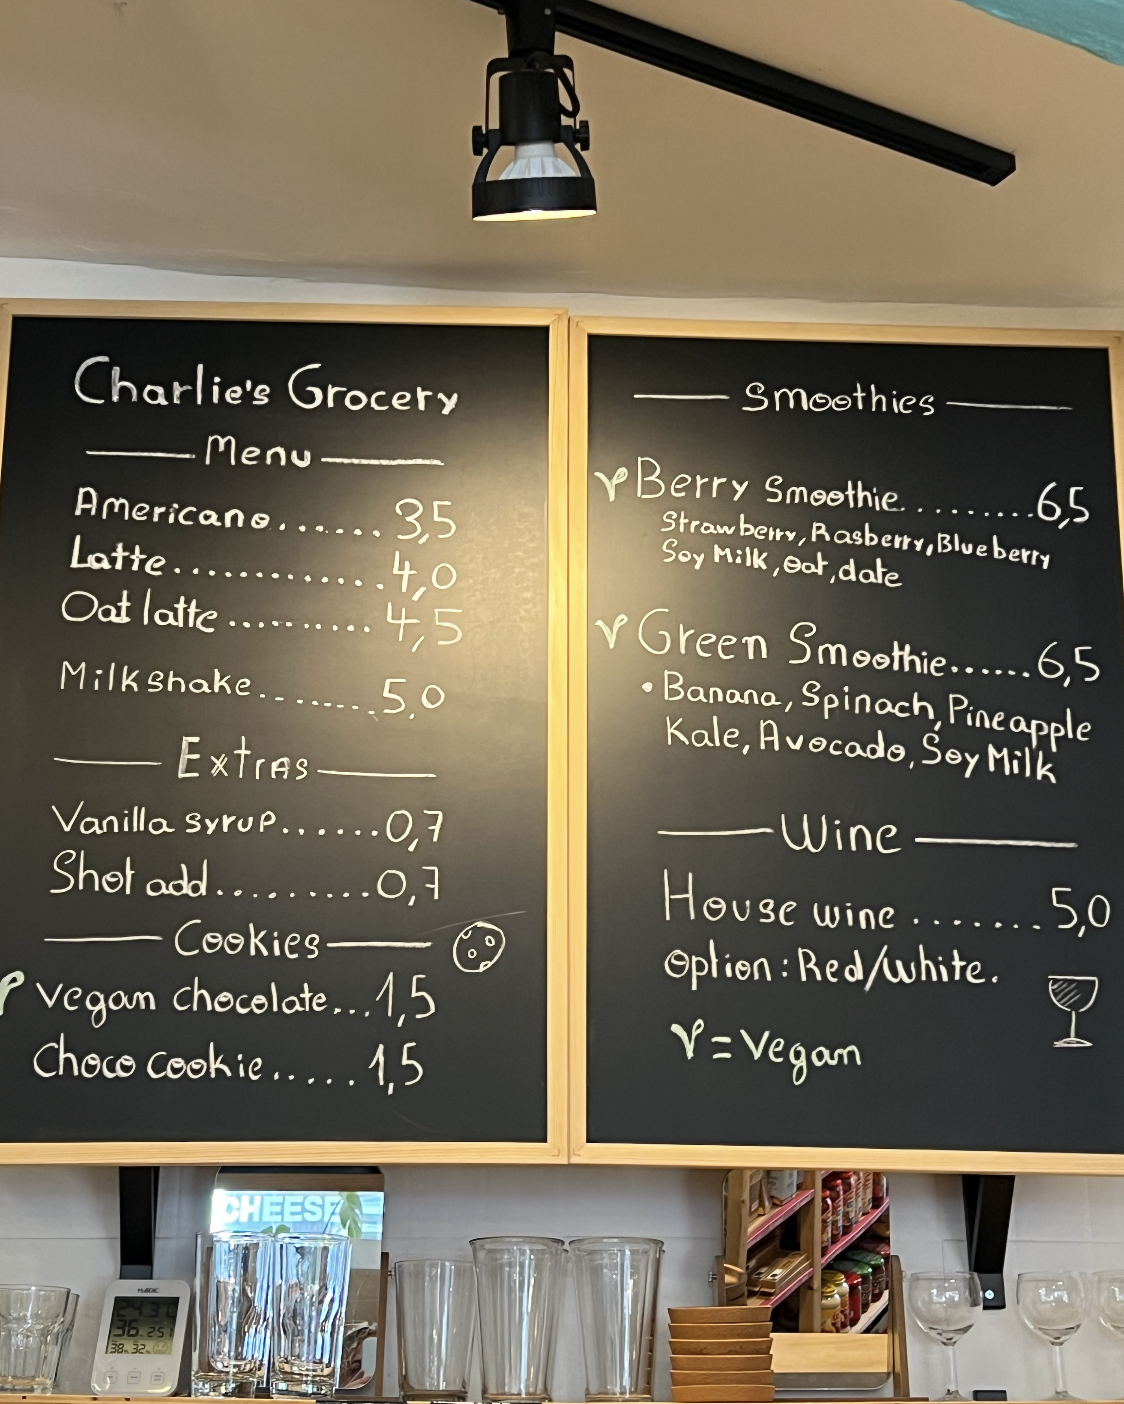 Charlie's Grocery
Menu
Americano....... 3,5
Latte.............4,0
Oat latte.......... 4,5
Milkshake..........5,0
Extras
Vanilla syrup.......0,7
Shot add..........0,7
Cookies
V Vegan chocolate...1,5
Choco cookie.....1,5
Smoothies
V Berry Smoothie..........6,5
Strawberry, Rasberry, Blueberry
Soy Milk, oat, date
V Green Smoothie......6,5
• Banana, Spinach, Pineapple
Kale, Avocado, Soy Milk
Wine
House wine ....... 5,0
Option: Red/White.
V = Vegan
CHEESE